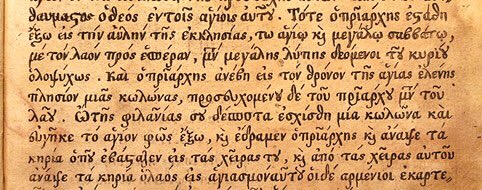 θαυμαςτὸς ὁ θεος ἐν τοῖς ἁγίοις αυτȣ͂. Τότε ὁ πρίαρχης ἐχάθη
ἔξω εἰς τὴν αὐλὴν τῆς ἐκκλησίας, τω ἁγίῳ κ̀ μεγάλῳ σαββάτῳ,
μὲ τον λαον πρὸς ἑσπέραν, μὲ μεγάλης λύπης δεόμενοι τȣ κυρίȣ
ὁλοψύχως. Και ὁ πρίαρχης ἀνέβη εἰς τον θρονον τῆς ἁγίας ἑλένης
πλησίον μιᾶς κολώνας, προσευχομένȣ δὲ τοῦ πρίαρχȣ μὲ τοῦ
λαȣ͂. Ὢ τῆς φιλανίας σȣ δέσποτα ἐσχίσθη μία κωλώνα καὶ
ἐυγῆκε το ἅγιον φῶς ἔξω, κ̀ ἔδραμεν ὁ πρίαρχης κ̀ ἄναψε τα
κηρία ὁπȣ͂ ἐβάσταζεν εἰς τας χεῖρας τȣ, κ̀ ἀπὸ τας χεῖρας αυτοῦ
ἄναψε τα κηρία ὁ λαος εἰς ἁγιασμον αυτȣ͂ οἱ δὲ ἀρμένιοι ἐκαρτε,